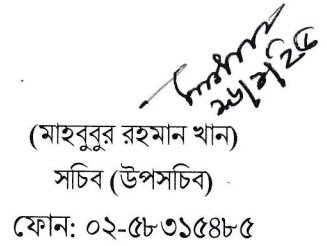 ২৬/৯/২৫
(মাহবুবুর রহমান খান)
সচিব (উপসচিব)
ফোন: ০২-৫৮৩১৫৪৮৫